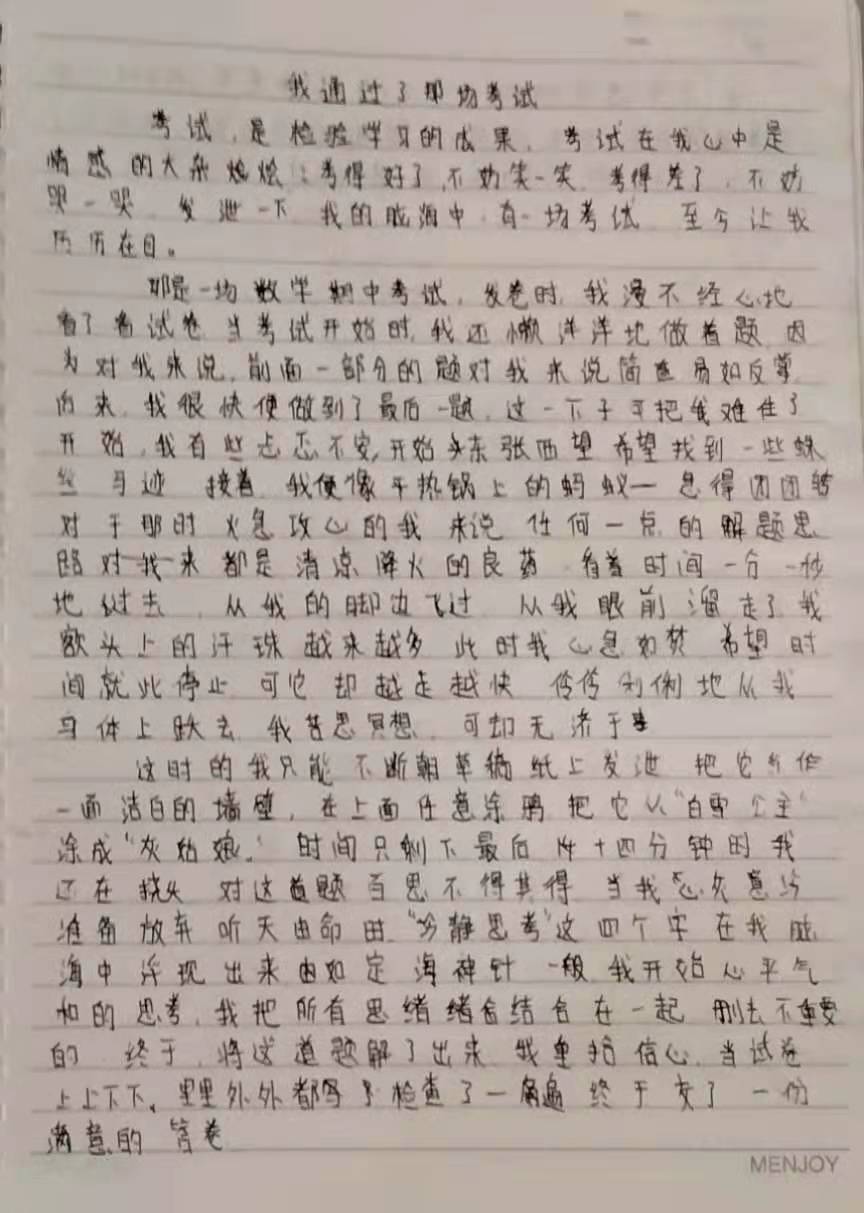 我通过了那场考试
考试，是检验学习的成果，考试在我心中是
情感的大杂烩：考得好了，不妨笑一笑，考得差了，不妨
哭一哭，发泄一下，我的脑海中，有一场考试，至今让我
历历在目。
那是一场数学期中考试，发卷时，我漫不经心地
看了看试卷，当考试开始时，我还懒洋洋地做着题，因
为对我来说，前面一部分的题对我来说简直易如反掌
而来，我很快便做到了最后一题，这一下子可把我难住了
开始，我有些忐忑不安，开始东张西望，希望找到一些蛛
丝马迹，接着，我便像平热锅上的蚂蚁一 急得团团转
对于那时火急攻心的我来说，任何一点的解题思
路对我来都是清凉降火的良药，看着时间一分一秒
地过去，从我的脚边飞过，从我眼前溜走了，我
额头上的汗珠越来越多，此时我心急如焚，希望时
间就此停止，可它却越走越快，伶伶俐俐地从我
身体上跃去，我苦思冥想，可却无济于事
这时的我只能不断朝草稿纸上发泄，把它当作
一面洁白的墙壁，在上面任意涂鸦，把它从“白雪公主”
涂成“灰姑娘。”时间只剩下最后十四分钟时，我
还在挠头，对这道题百思不得其得，当我
准备放弃，听天由命时，“冷静思考”这四个字在我脑
海中浮现出来，由如定海神针一般，我开始心平气
和的思考，我把所有思绪绪合结合在一起，删去不重要
的，终于，将这道题解了出来，我重拾信心，当试卷
上上下下、里里外外都 检查了一遍，终于交了一份
满意的答卷
MENJOY